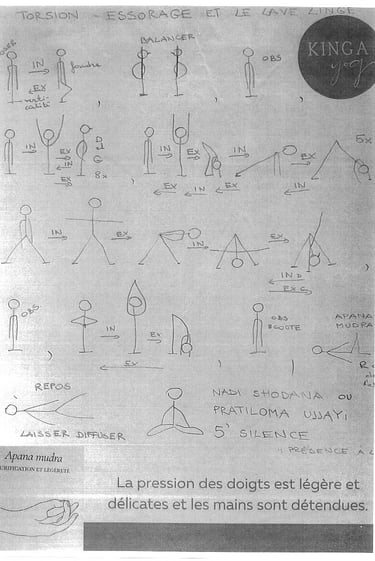 TORSION - ESSORAGE ET LE LAVE LINGE
BALANCER
KINGA
yoga
OBS
IN
EX
fondre
verti-
calité
IN
EX
IN
EX
D
et
G
8x
IN
EX
IN
EX
IN
EX
IN
EX
5x
IN
EX
IN
EX
IN D
EX G
OBS
IN
EX
EX
OBS
ECOUTE
APANA
MUDRA
REPOS
LAISSER DIFFUSER
NADI SHODANA OU
PRATILOMA UJJAYI
5' SILENCE
PRÉSENCE À
Apana mudra
URIFICATION ET LÉGÈRETÉ
La pression des doigts est légère et
délicates et les mains sont détendues.